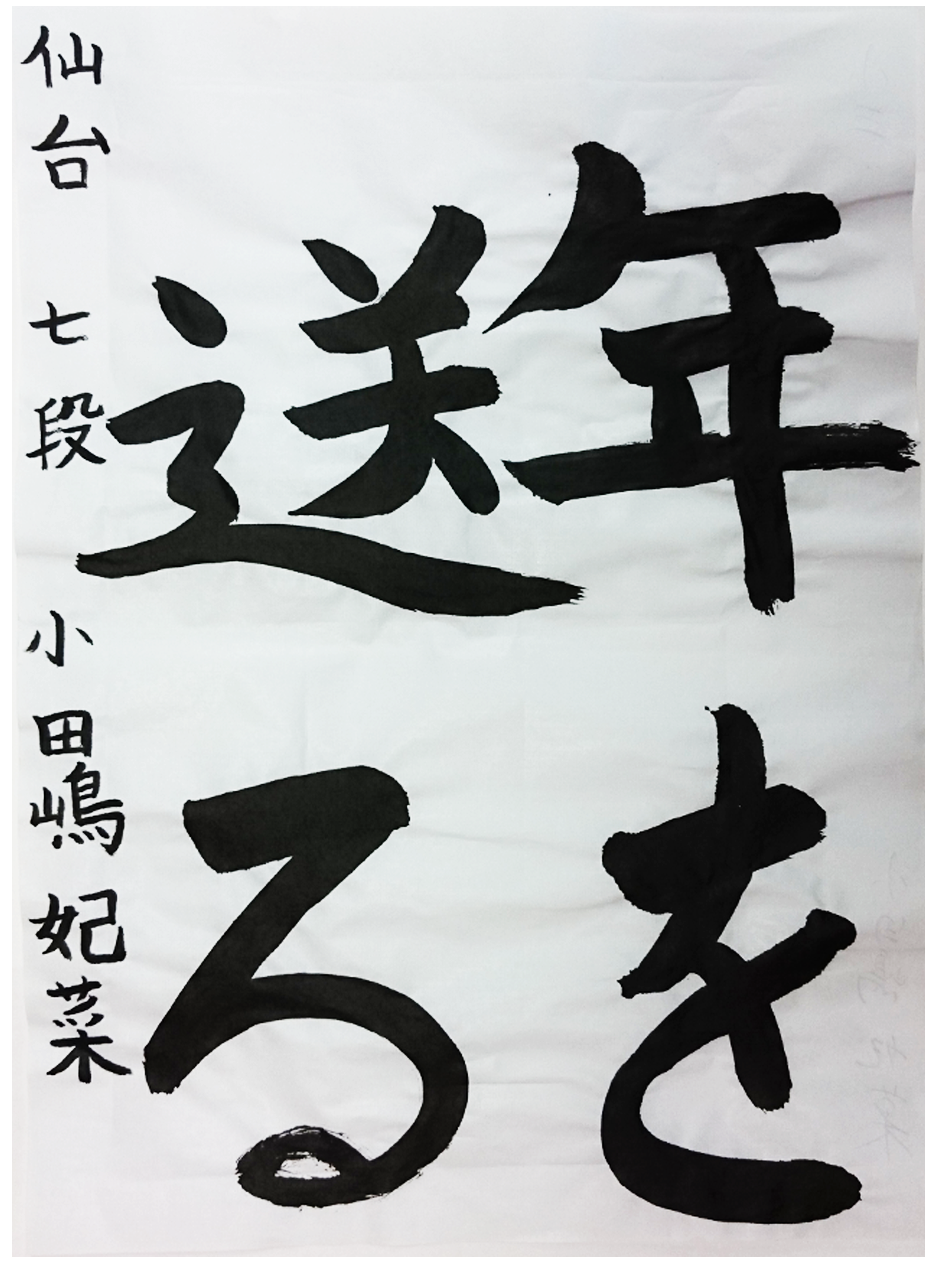 年を
送る
仙台 七段 小田嶋 妃菜